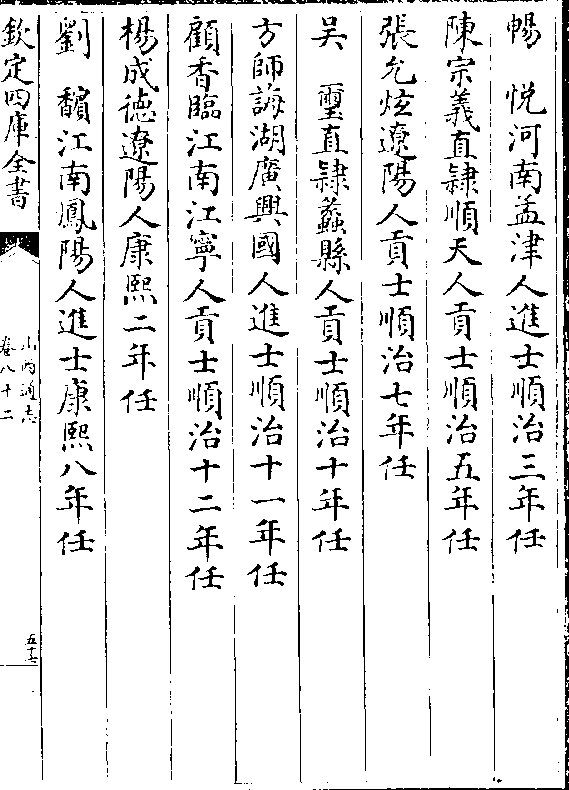 暢　悅河南孟津人進士順治三年任
陳宗義直隸順天人貢士順治五年任
張允炫遼陽人貢士順治七年任
吳　璽直隸蠡縣人貢士順治十年任
方師誨湖廣興國人進士順治十一年任
顧香臨江南江寧人貢士順治十二年任
楊成德遼陽人康熙二年任
劉　馪江南鳳陽人進士康熙八年任
欽定四庫全書
山西通志
卷八十二